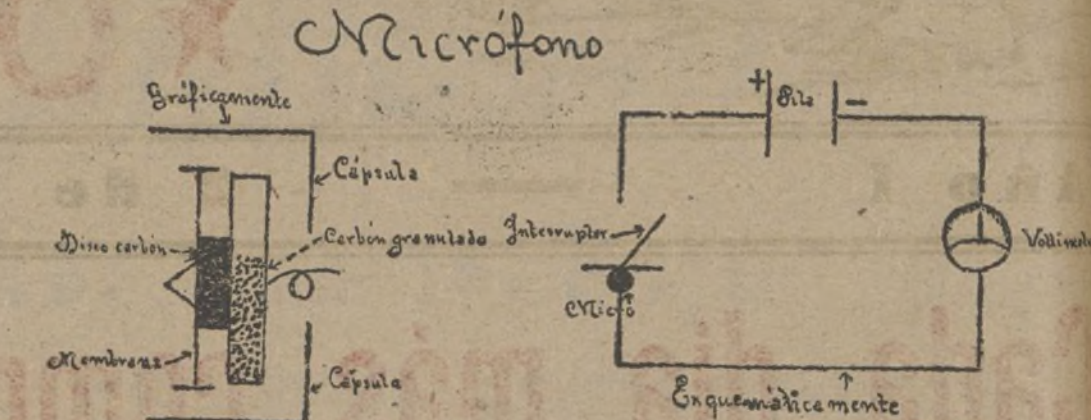 Micrófono
Gráficamente
Cápsula
Disco carbón
Carbón granulado
Membrana
Cápsula
+ Pila -
Interruptor
Micro
Esquemáticamente